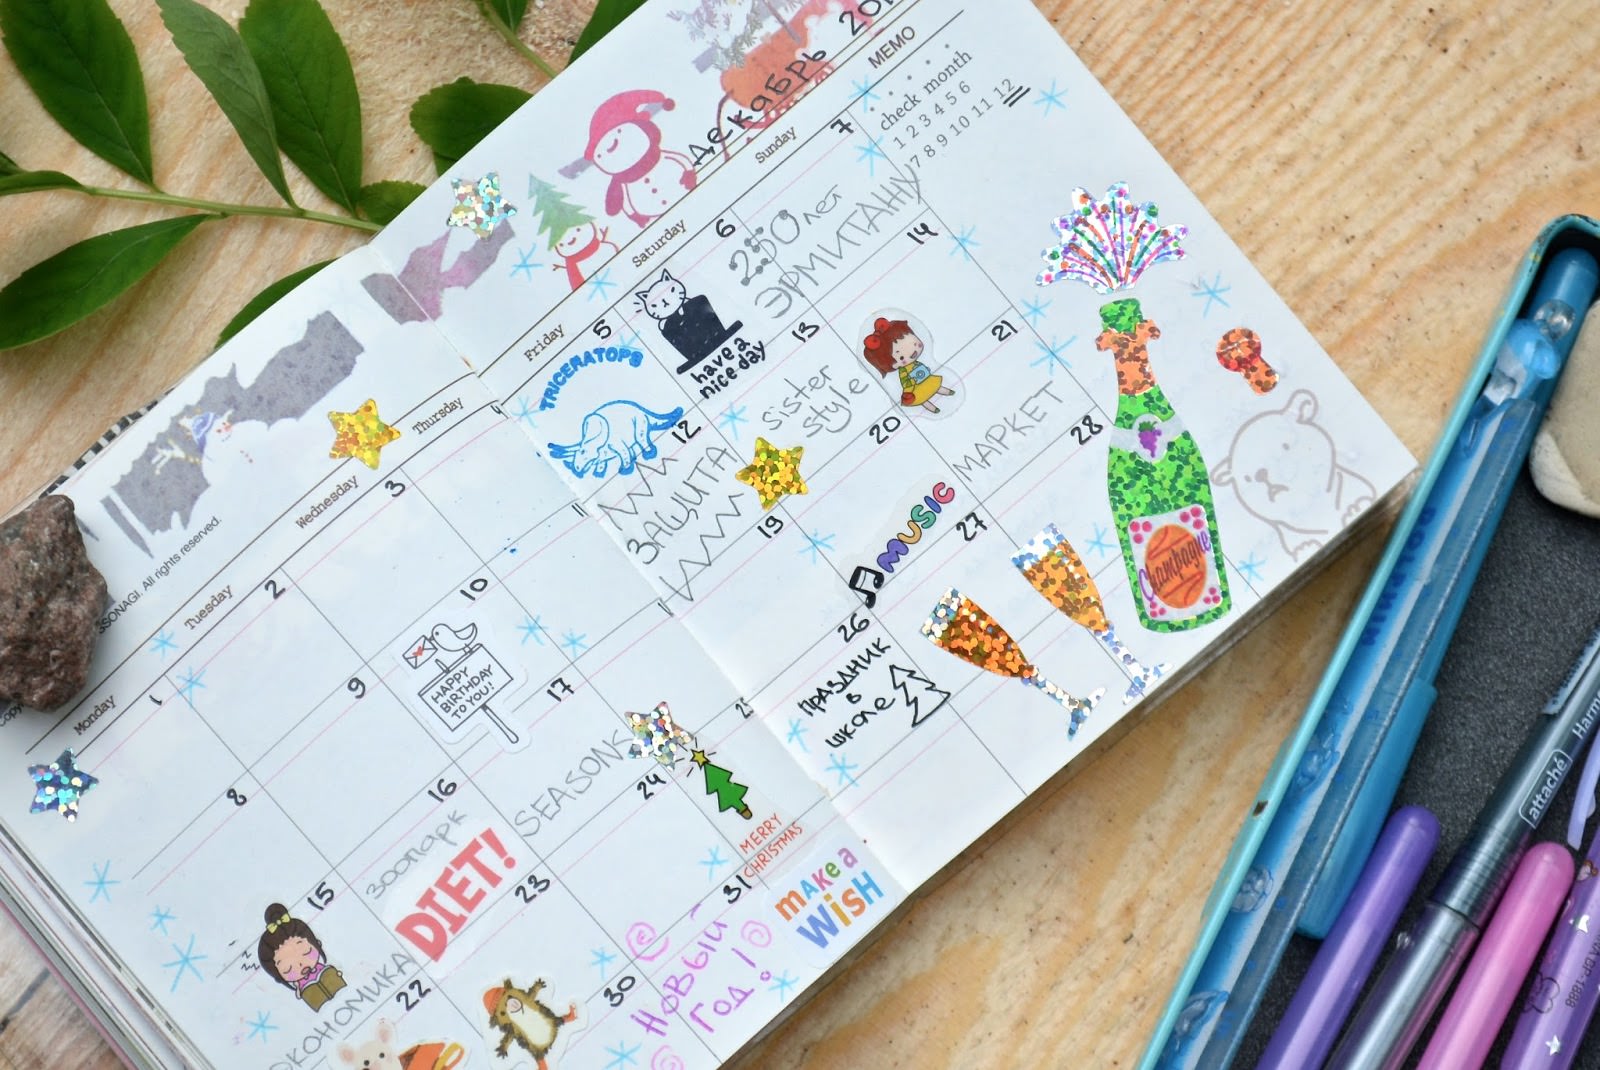 декабрь
MEMO
check month
1 2 3 4 5 6
7 8 9 10 11 12
All rights reserved.
Monday
Tuesday
Wednesday
Thursday
Friday
Saturday
Sunday
1
2
3
4
5
TRICERATOPS
6
have a
nice day
7
250 лет
ЭРМИТАЖУ
8
9
10
HAPPY
BIRTHDAY
TO YOU!
11
12
ЗАЩИТА
13
sister
style
14
15
16
зоопарк
DIET!
17
SEASONS
19
20
MUSIC
21
МАРКЕТ
22
23
24
25
MERRY
CHRISTMAS
26
ПРАЗДНИК
в
школе
27
28
Champagne
30
31
Новый
Год!
maKe a
WiSH
attaché